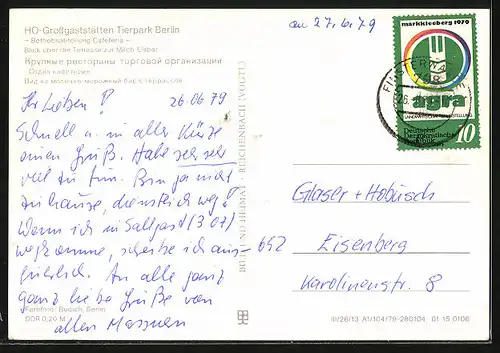 HO-Großgaststätten Tierpark Berlin
– Betriebsabteilung Cafeteria –
Blick über die Terrasse zur Milch-Eisbar
Крупные рестораны торговой организации
Отдел кафетерия
Вид на молочно-мороженый бар с террасой
an 27.6.79
Ihr Lieben! 26.06.79
Schnell u. in aller Kürze
einen Gruß. Habe sehr sehr
viel zu tun. Bin ja nicht
zu hause, dienstlich weg!
Wenn ich in Sallgast (307)
wegkomme, schreibe ich aus-
führlich. An alle ganz
ganz liebe Grüße von
allen
Farbfoto: Busch, Berlin
DDR 0,20 M
BILD UND HEIMAT REICHENBACH (VOGTL)
markkleeberg 1979
agra
LANDWIRTSCHAFTSAUSSTELLUNG
Deutsche
Demokratische
Republik
10
FINSTERWA
798
26.
Glaser + Hobusch
652 Eisenberg
Karolinenstr. 8
III/26/13 A1/104/79 280104 01 15 0106